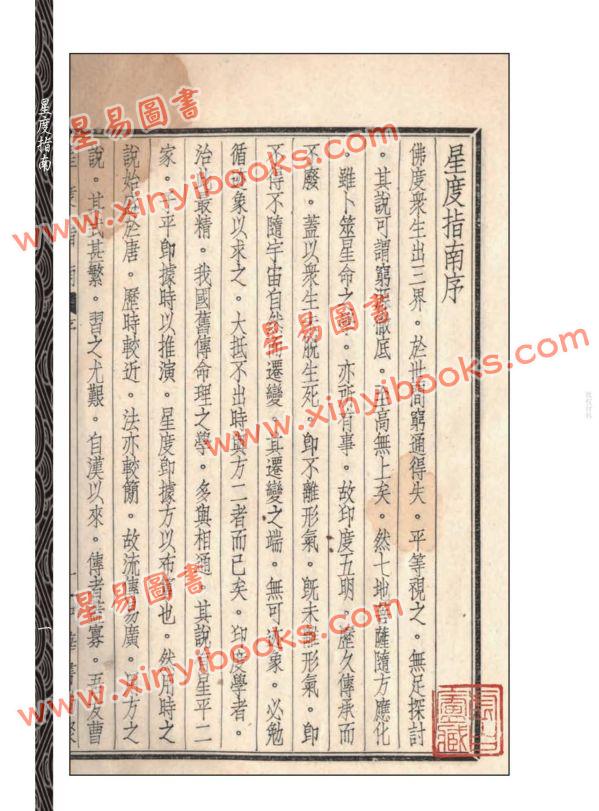 星度指南序
佛度衆生出三界。於世間窮通得失。平等視之。無足探討
。其說可謂窮源徹底。至高無上矣。然七地菩薩隨方應化
。雖卜筮星命之學。亦所有事。故印度五明。歷久傳承而
不廢。蓋以衆生未脫生死。即不離形氣。旣未離形氣。即
不得不隨宇宙自然而遷變。其遷變之端。無可迹象。必勉
循迹象以求之。大抵不出時與方二者而已矣。印度學者。
治此最精。我國舊傳命理之學。多與相通。其說有星平二
家。子平即據時以推演。星度即據方以布算也。然用時之
說始於唐。歷時較近。法亦較簡。故流傳易廣。用方之
說。其式甚繁。習之尤艱。自漢以來。傳者甚寡。吾友曹
星度指南
一
星易圖書
www.xinyibooks.com
星易圖書
www.xinyibooks.com
星易圖書
www.xinyibooks.com